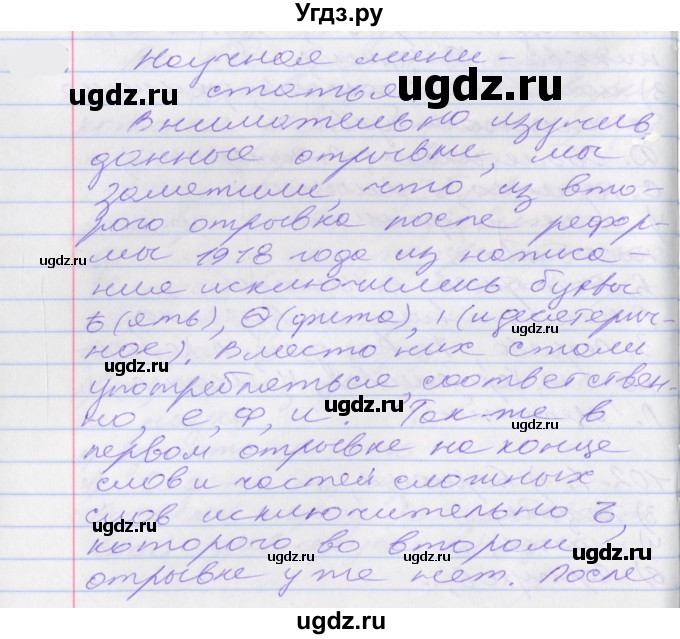 Угдз.ру
Научная мини-
статья
Внимательно изучив
данные отрывки, мы
заметили, что из вто-
рого отрывка после рефор-
мы 1918 года из написа-
ния исключились буквы
ѣ (ять), Ѳ (фита), і (и десятерич-
ное). Вместо них стали
употребляться, соответствен-
но, е, ф, и. Так же в
первом отрывке на конце
слов и частей сложных
слов исключительно Ъ,
которого во втором
отрывке уже нет. После
ugdz.ru
ugdz.ru
ugdz.ru
ugdz.ru
ugdz.ru
ugdz.ru
ugdz.ru
ugdz.ru
ugdz.ru
ugdz.ru
ugdz.ru
ugdz.ru